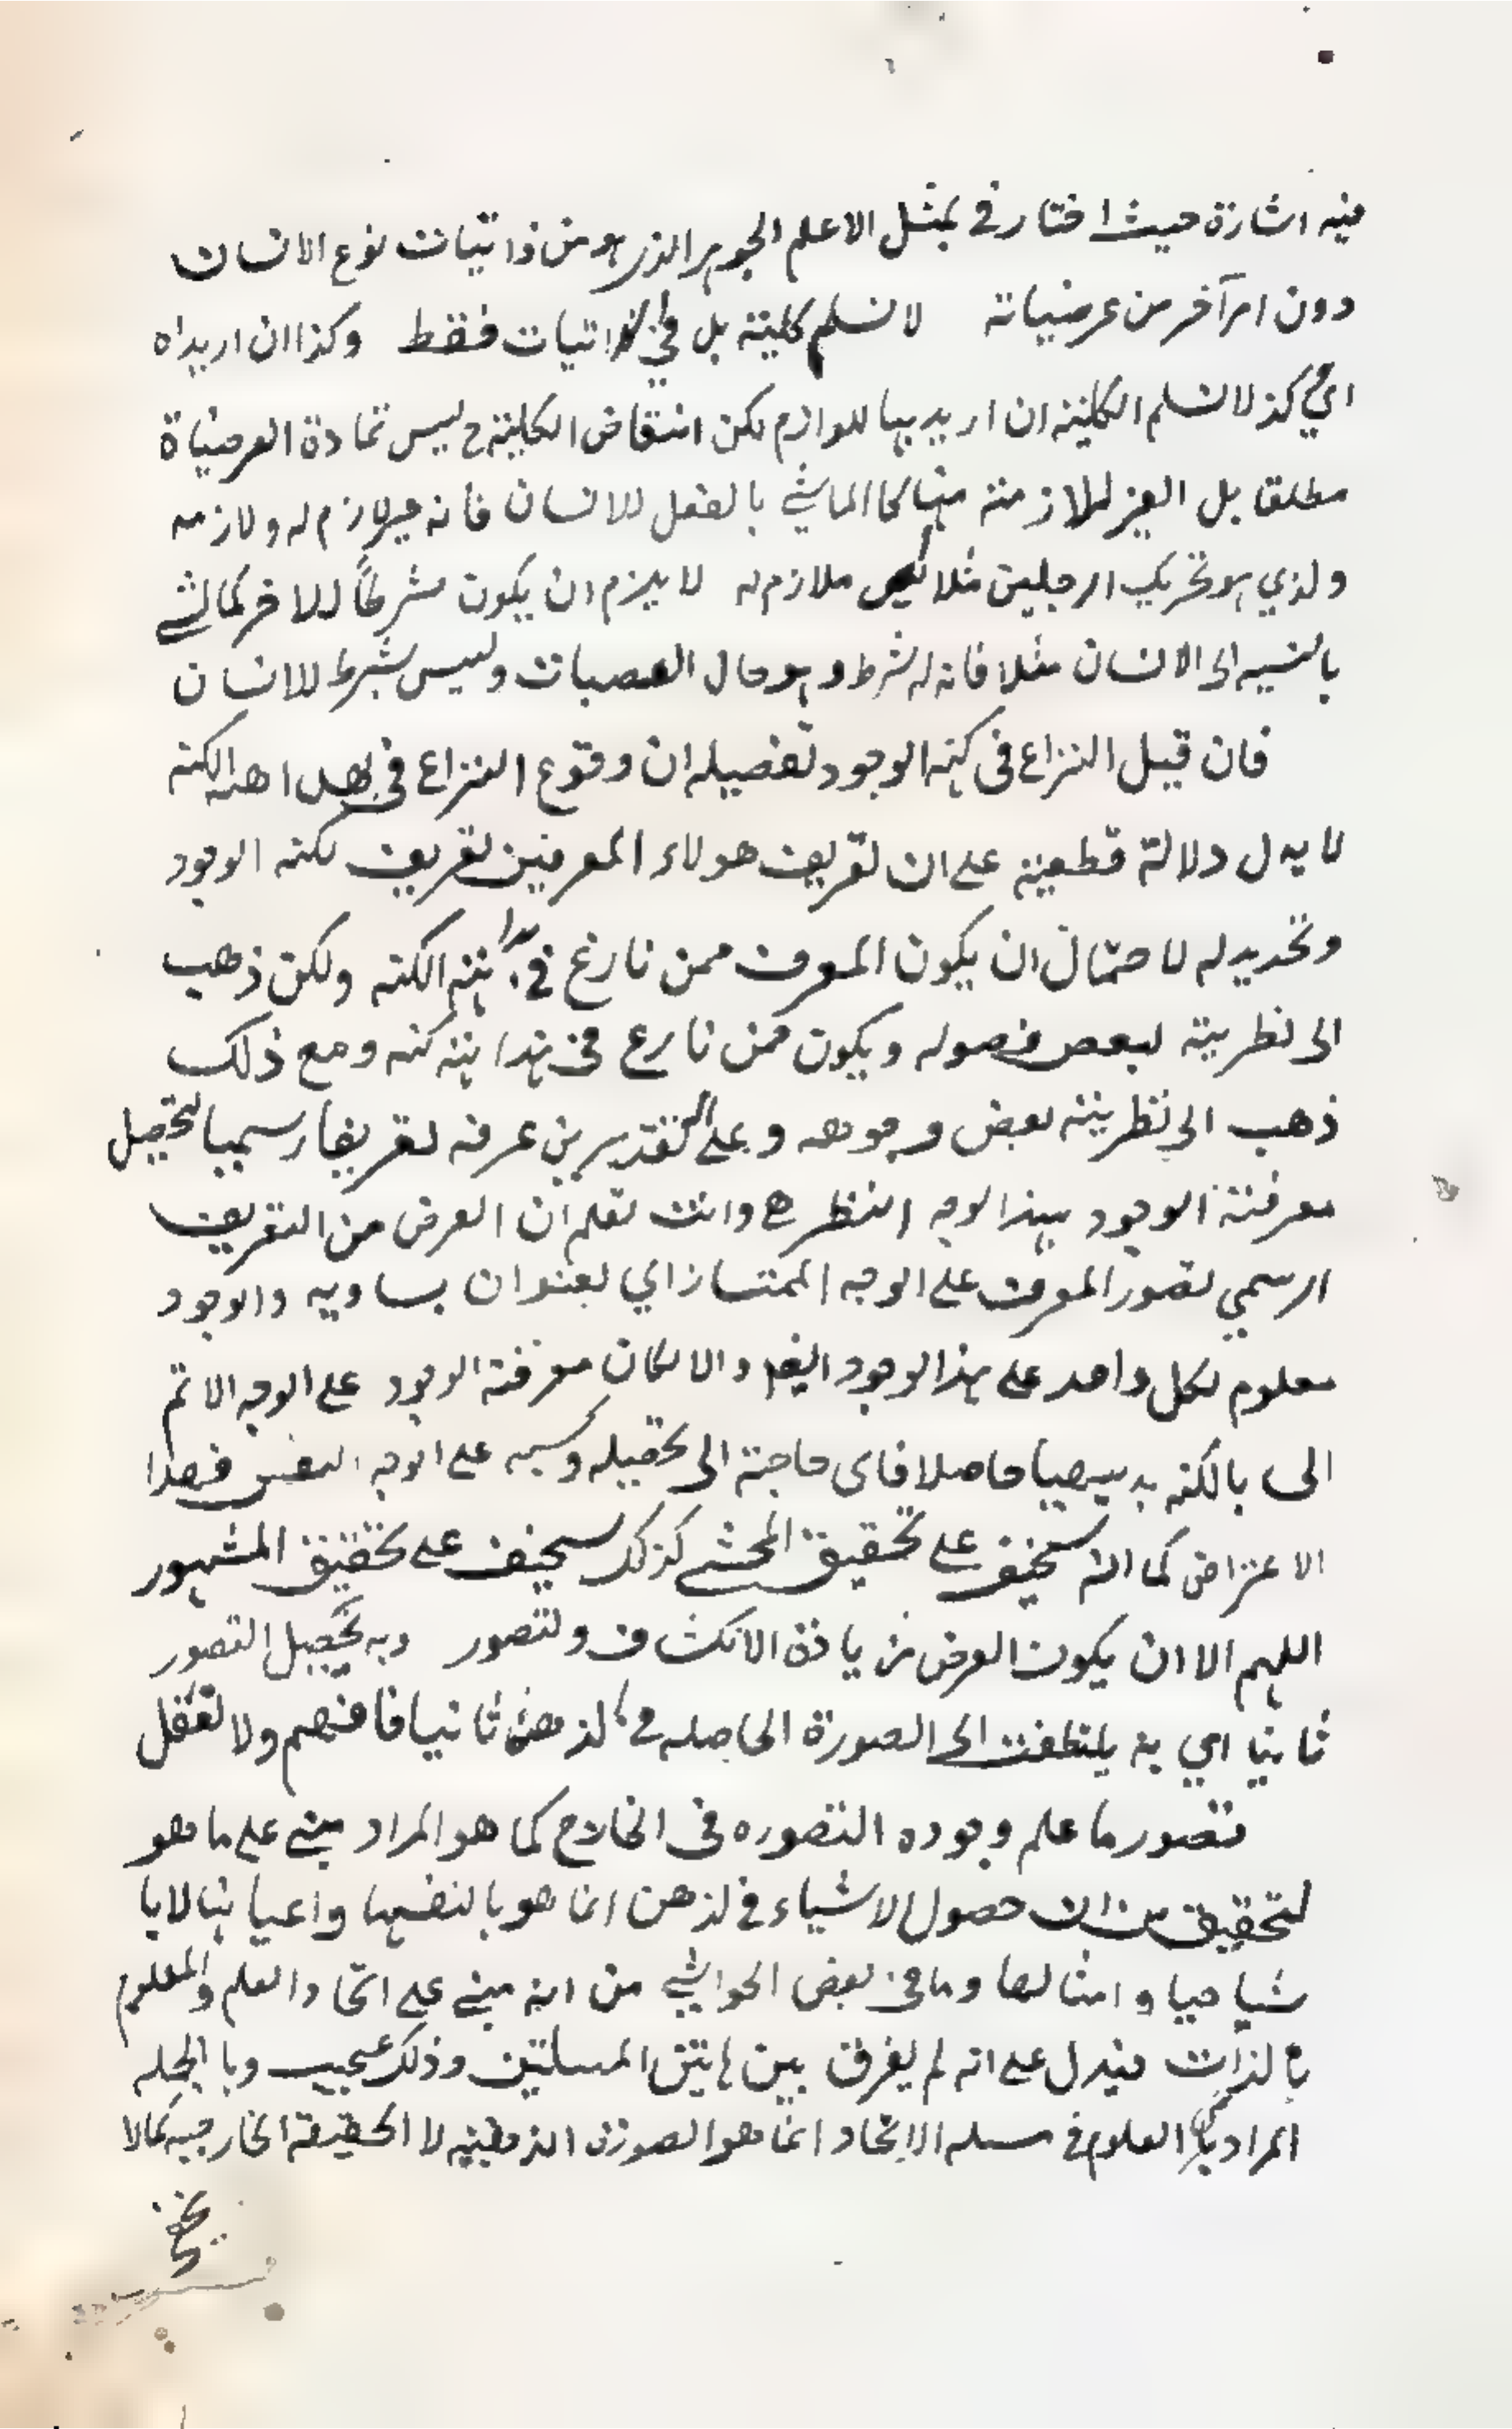 فيه اشارة حيث اختار في تمثيل الاعلم الجوهر الذي هو من ذاتيات نوع الانسان
دون امر آخر من عرضياته لا نسلم كلية بل في الذاتيات فقط وكذا ان اريد اه
اي كذ لا نسلم الكلية ان اريد بها للوازم لكن انتقاض الكلية ح ليس بمادة العرضياة
مطلقا بل الغير للازمة منها كالماشي بالفعل للانسان فانه غير لازم له ولازمه
ولذي هو تحريك ارجلين مثلا ليس ملازم له لا يلزم ان يكون شرطاً للاخر كالمشي
بالنسبه الى الانسان مثلا فانه له شرط وهو حال العصبات وليس بشرط للانسان
فان قيل النزاع في كنه الوجود تفصيله ان وقوع النزاع في بداهة الكنه
لا يدل دلالة قطعية على ان تعريف هولاء المعرفين تعريف لكنه الوجود
وتحديد له لاحتمال ان يكون المعرف ممن نازع في بداهته الكنه ولكن ذهب
الى نظرية لبعض فصوله ويكون ممن نازع في بداهته كنه ومع ذلك
ذهب الى نظريته بعض وجوهه وعلى التقديرين عرفه تعريفا رسميا لتحصيل
معرفة الوجود بهذا الوجه النظرى وانت تعلم ان الغرض من التعريف
الرسمي تصور المعرف على الوجه الممتاز اي بعنوان يساويه والوجود
معلوم لكل واحد على هذا الوجود ايضا والا لكان معرفة الوجود على الوجه الاتم
الى بالكنه بديهيا حاصلا فاى حاجة الى تحصيله وكسبه على الوجه النقص فهذا
الاعتراض كما انه سخيف على تحقيق المحشي كذلك سخيف على تحقيق المشهور
اللهم الا ان يكون الغرض زيادة الانكشاف ولتصور وبه يحصل التصور
ثانيا اي به يلتفت الى الصورة الحاصله في الذهن ثانيا فافهم ولا تغفل
تصور ما علم وجوده التصوره في الخارج كما هو المراد مبني على ما هو
لتحقيق من ان حصول الاشياء في لذهن انما هو بانفسها واعيانها لا با
شباحها وامثالها وما في بعض الحواشي من انه مبني على اتحاد العلم والمعلوم
بالذات فيدل على انه لم يفرق بين هاتين المسلتين وذلك عجيب وبالجمله
المراد بالمعلوم في مسله الاتحاد انما هو الصورة الذهنيه لا الحقيقة الخارجيه كما لا
يخفى